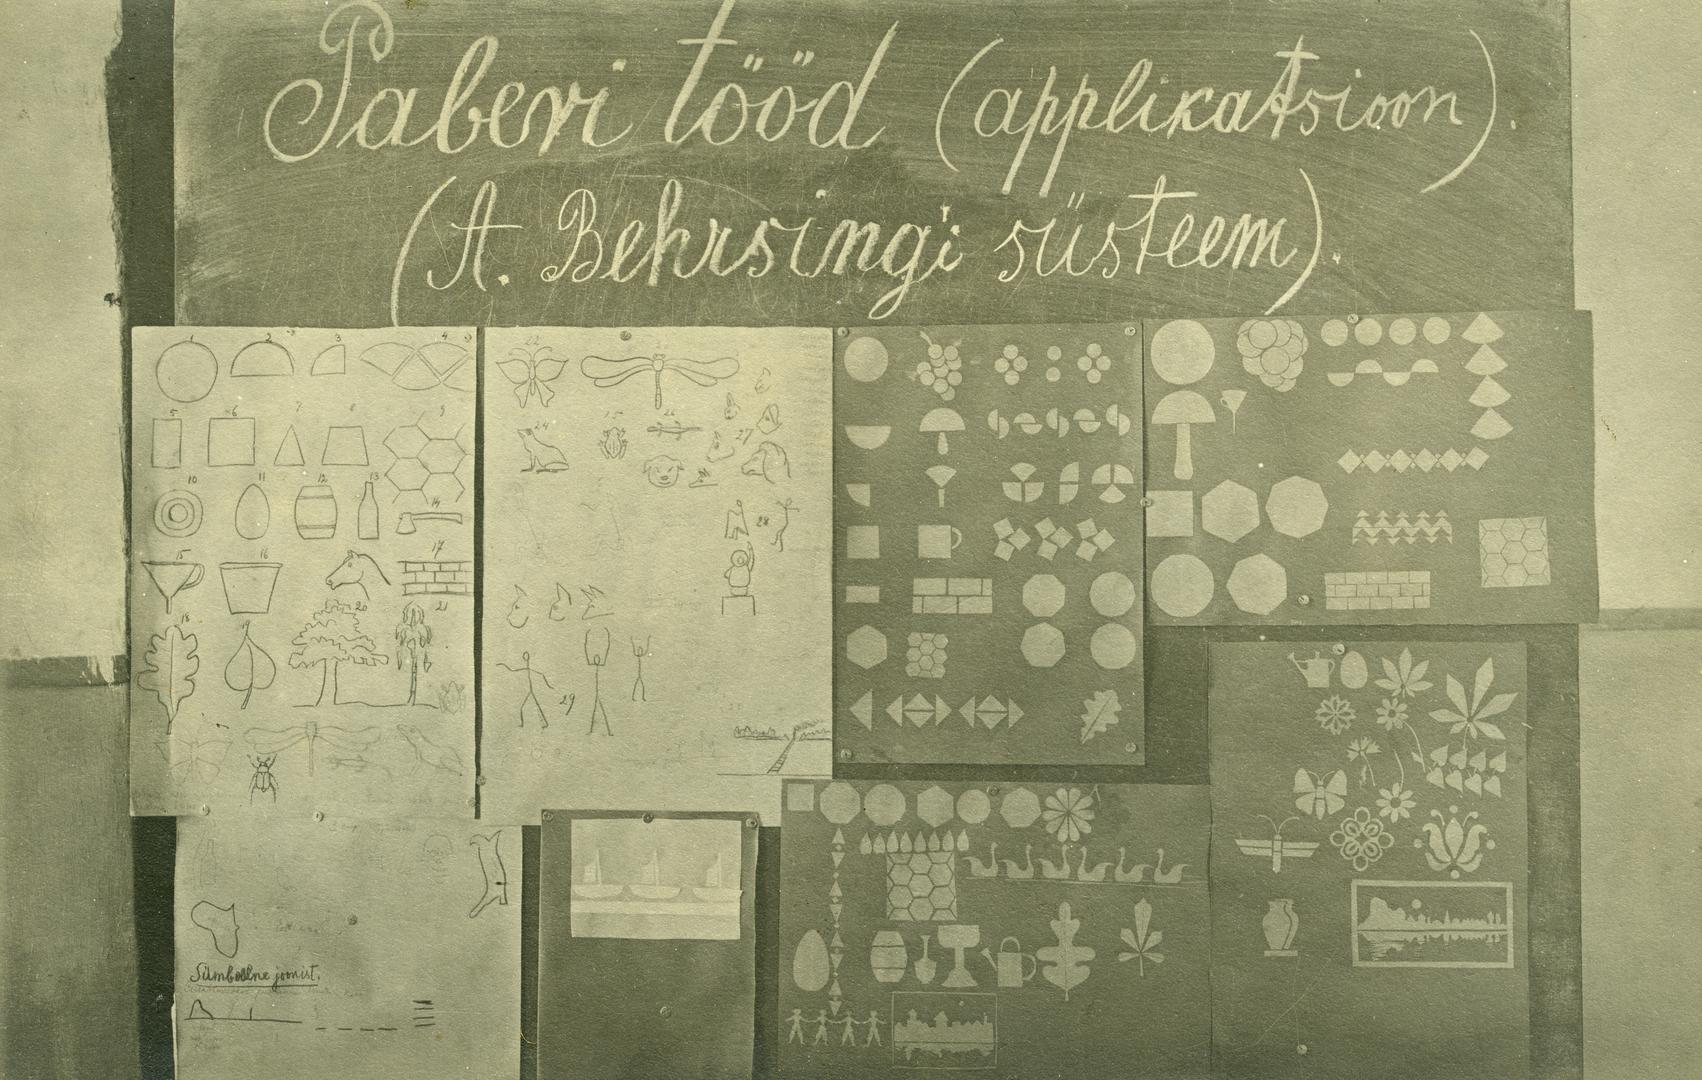 Paberi tööd (applikatsioon).
(A. Behrsingi süsteem).
1 2 3 4
5 6 7 8 9
10 11 12 13 14
15 16 17
18 19 20 21
22
24 26 27
28
29
Sümboolne joonist.